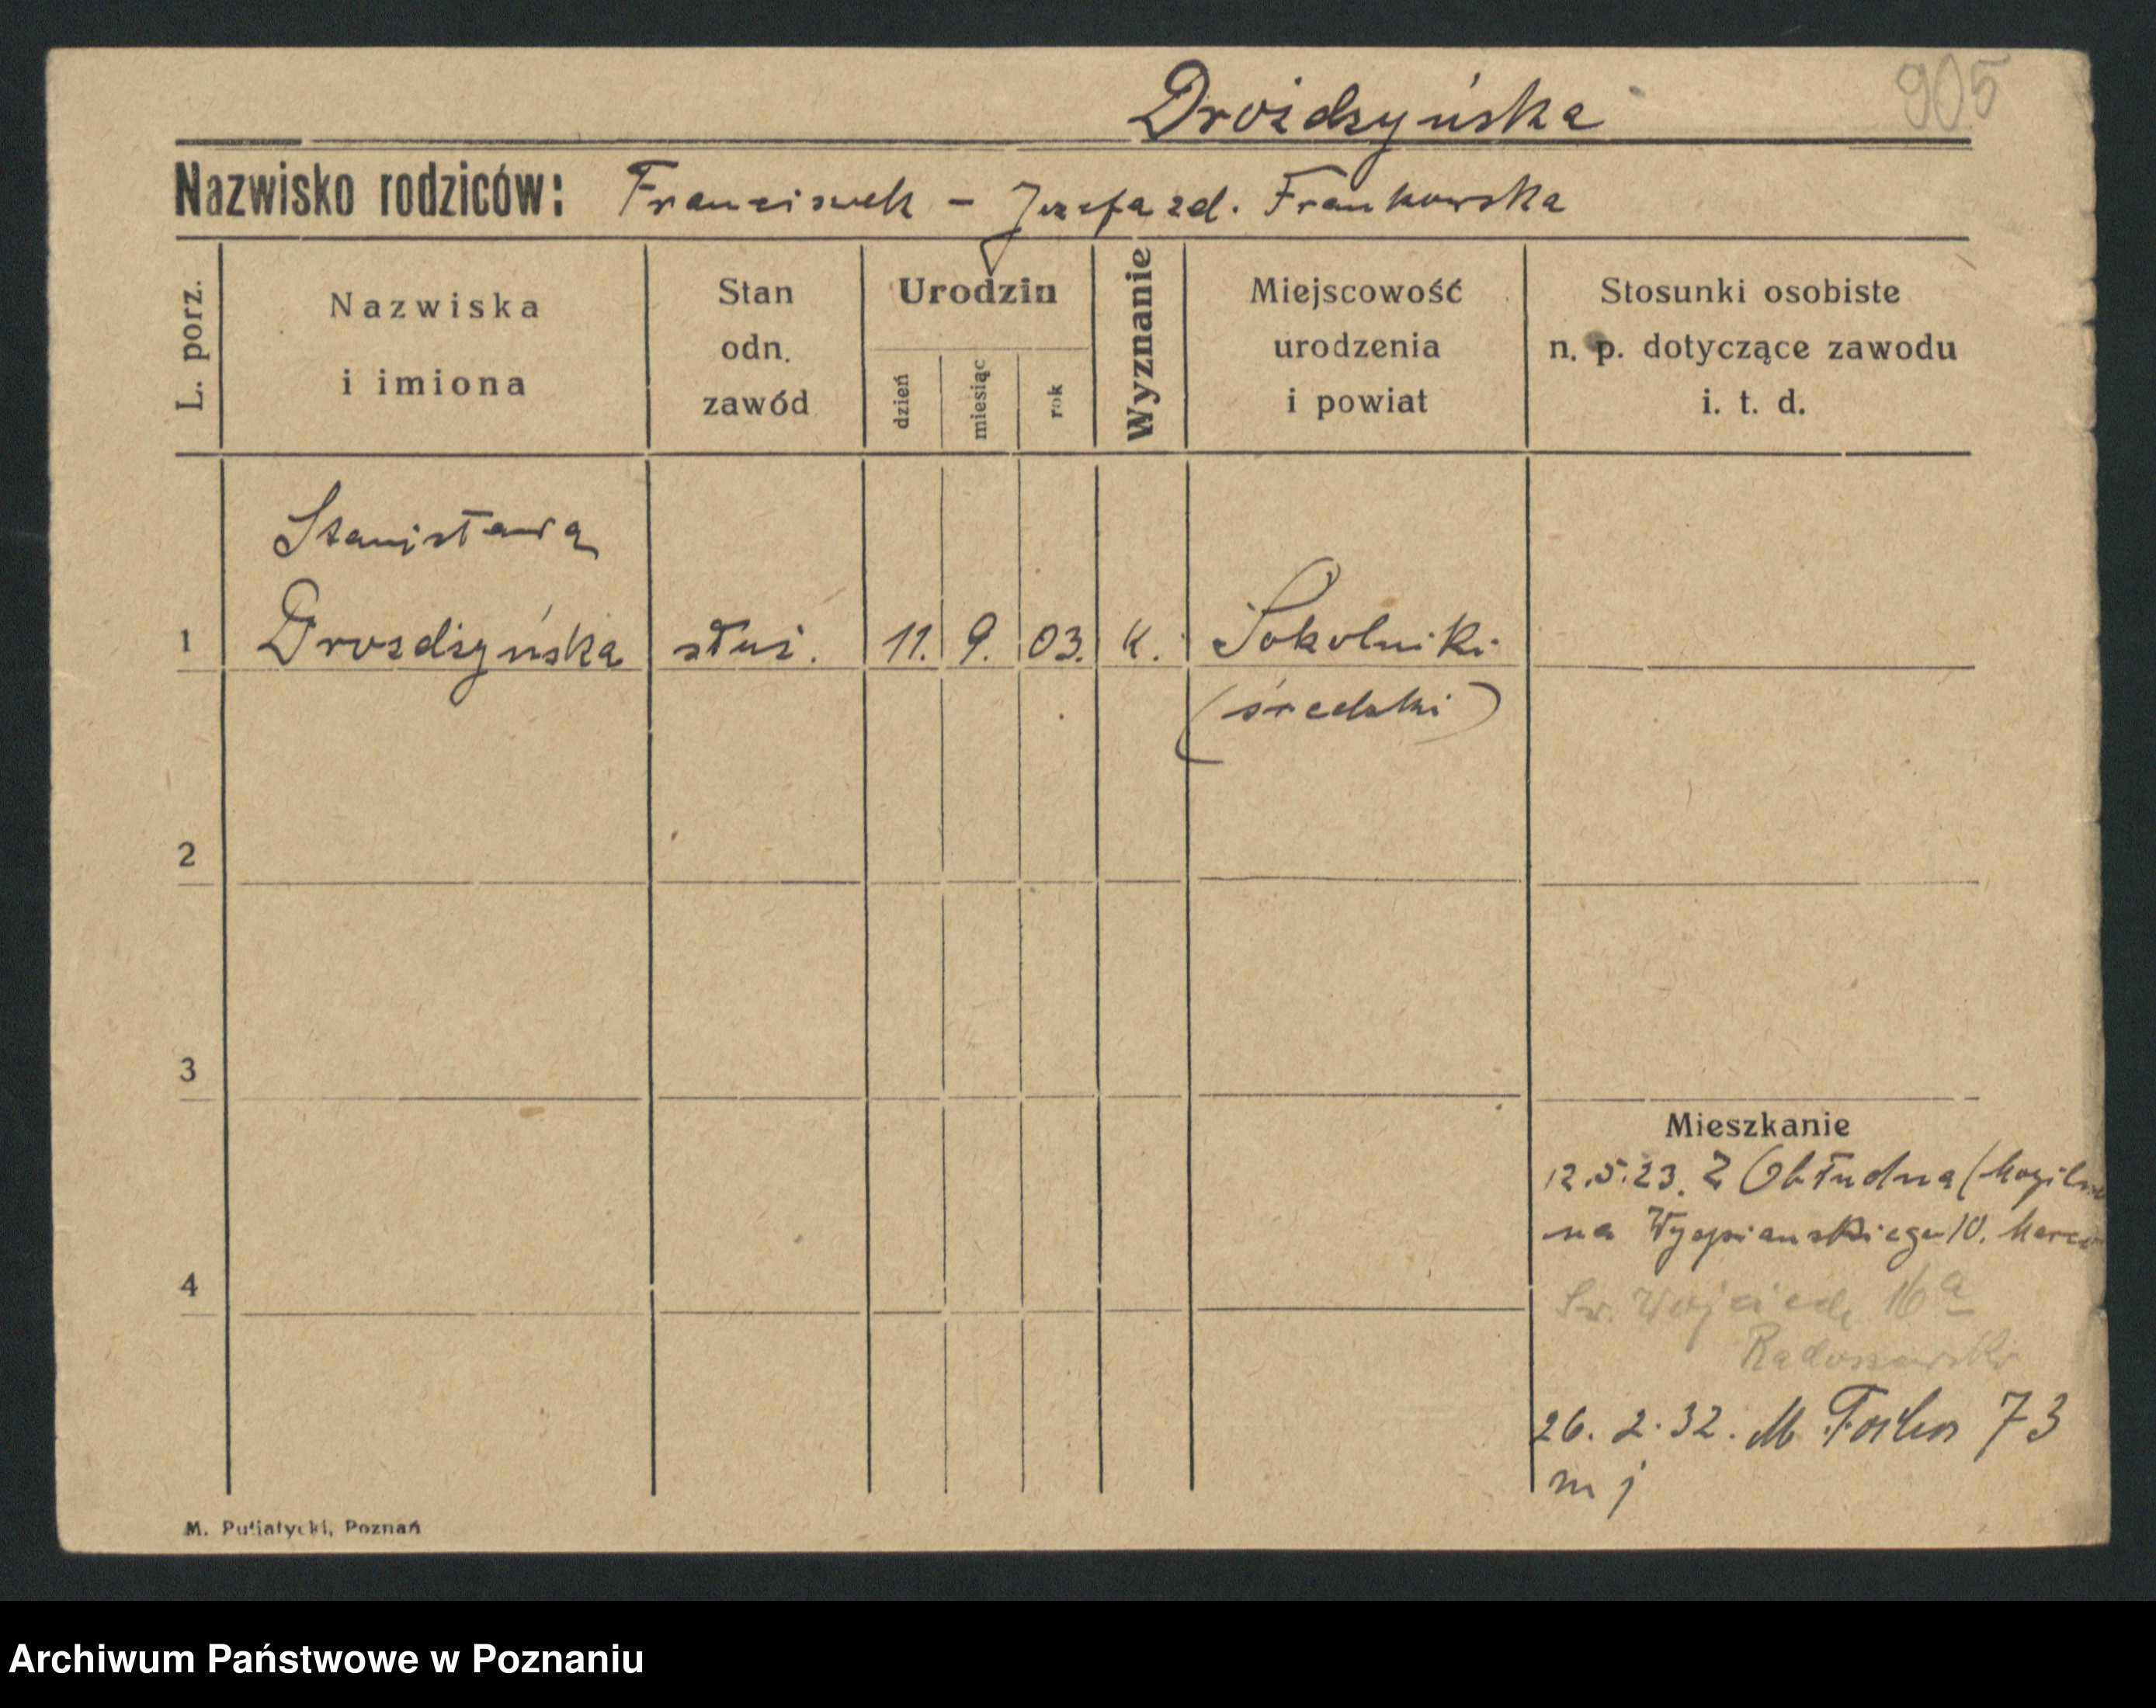 905
Drożdzyńska
Nazwisko rodziców: Franciszek - Józefa zd. Frankowska
L. porz.
Nazwiska
i imiona
Stan
odn.
zawód
Urodzin
dzień
miesiąc
rok
Wyznanie
Miejscowość
urodzenia
i powiat
Stosunki osobiste
n. p. dotyczące zawodu
i. t. d.
Stanisława
1 Drozdzyńska służ. 11. 9. 03. k. Sokolniki
(średzki)
2
3
4
Mieszkanie
12.5.23. Z Obłudna (Mogilno
na Wyspiańskiego 10.
Św. Wojciech 16a
26. 2. 32. M 73
M. Putiatycki, Poznań
Archiwum Państwowe w Poznaniu